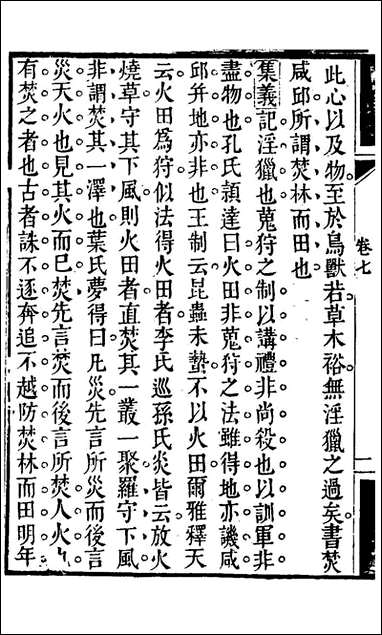 此心以及物至於鳥獸若草木裕無淫獵之過矣書焚
咸邱所謂焚林而田也
集義記淫獵也蒐狩之制以講禮非尚殺也以訓軍非
盡物也孔氏頴達曰火田非蒐狩之法雖得地亦譏咸
邱并地亦非也王制云昆蟲未蟄不以火田爾雅釋天
云火田爲狩似法得火田者李氏巡孫氏炎皆云放火
燒草守其下風則火田者直焚其一叢一聚羅守下風
非謂焚其一澤也葉氏夢得曰凡災先言所災而後言
災天火也見其火而已焚先言焚而後言所焚人火也
有焚之者也古者誅不逐奔追不越防焚林而田明年
卷七